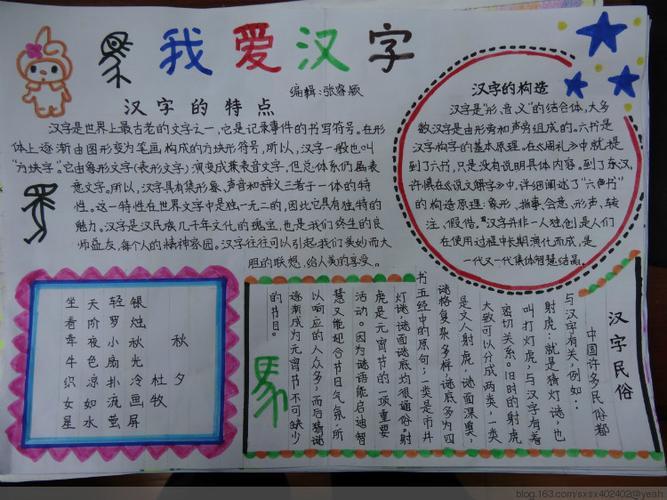 我爱汉字
编辑:张睿颖
汉字的特点
汉字是世界上最古老的文字之一,它是记录事件的书写符号。在形
体上逐渐由图形变为笔画,构成的方块形符号。所以,汉字一般也叫
"方块字"。它由象形文字(表形文字)演变成兼表音文字,但总体系仍属表
意文字。所以,汉字具有集形象、声音和辞义三者于一体的特
性。这一特性在世界文字中是独一无二的,因此它具有独特的
魅力。汉字是汉民族几千年文化的瑰宝,也是我们终生的良
师益友,每个人的精神家园。汉字往往可以引起我们美妙而大
胆的联想,给人美的享受。
汉字的构造
汉字是"形、音、义"的结合体,大多
数汉字是由形旁和声旁组成的。六书是
汉字构字的基本原理,在《周礼》中就提
到了六书,只是没有说明具体内容。到了东汉,
许慎在《说文解字》中,详细阐述了"六书"
的构造原理:象形、指事、会意、形声、转
注、假借。汉字并非一人独创,是人们
在使用过程中长期演化而成,是
一代又一代集体智慧结晶。
秋夕
杜牧
银烛秋光冷画屏
轻罗小扇扑流萤
天阶夜色凉如水
坐看牵牛织女星
汉字民俗
中国许多民俗都
与汉字有关,例如:
射虎,就是猜灯谜,也
叫打灯虎,与汉字有着
密切关系。旧时的射虎
大致可以分成两类,一类
是文人射虎,谜面深奥,
谜格复杂多样,谜底多为四
书五经中的原句;一类是市井
灯谜,谜面谜底均很通俗。射
虎是元宵节的一项重要
活动。因为谜语能启迪智
慧又能迎合节日气氛,所
以响应的人众多,而后猜谜
逐渐成为元宵节不可缺少
的节目。
blog.163.com/sxsx402402@yeah